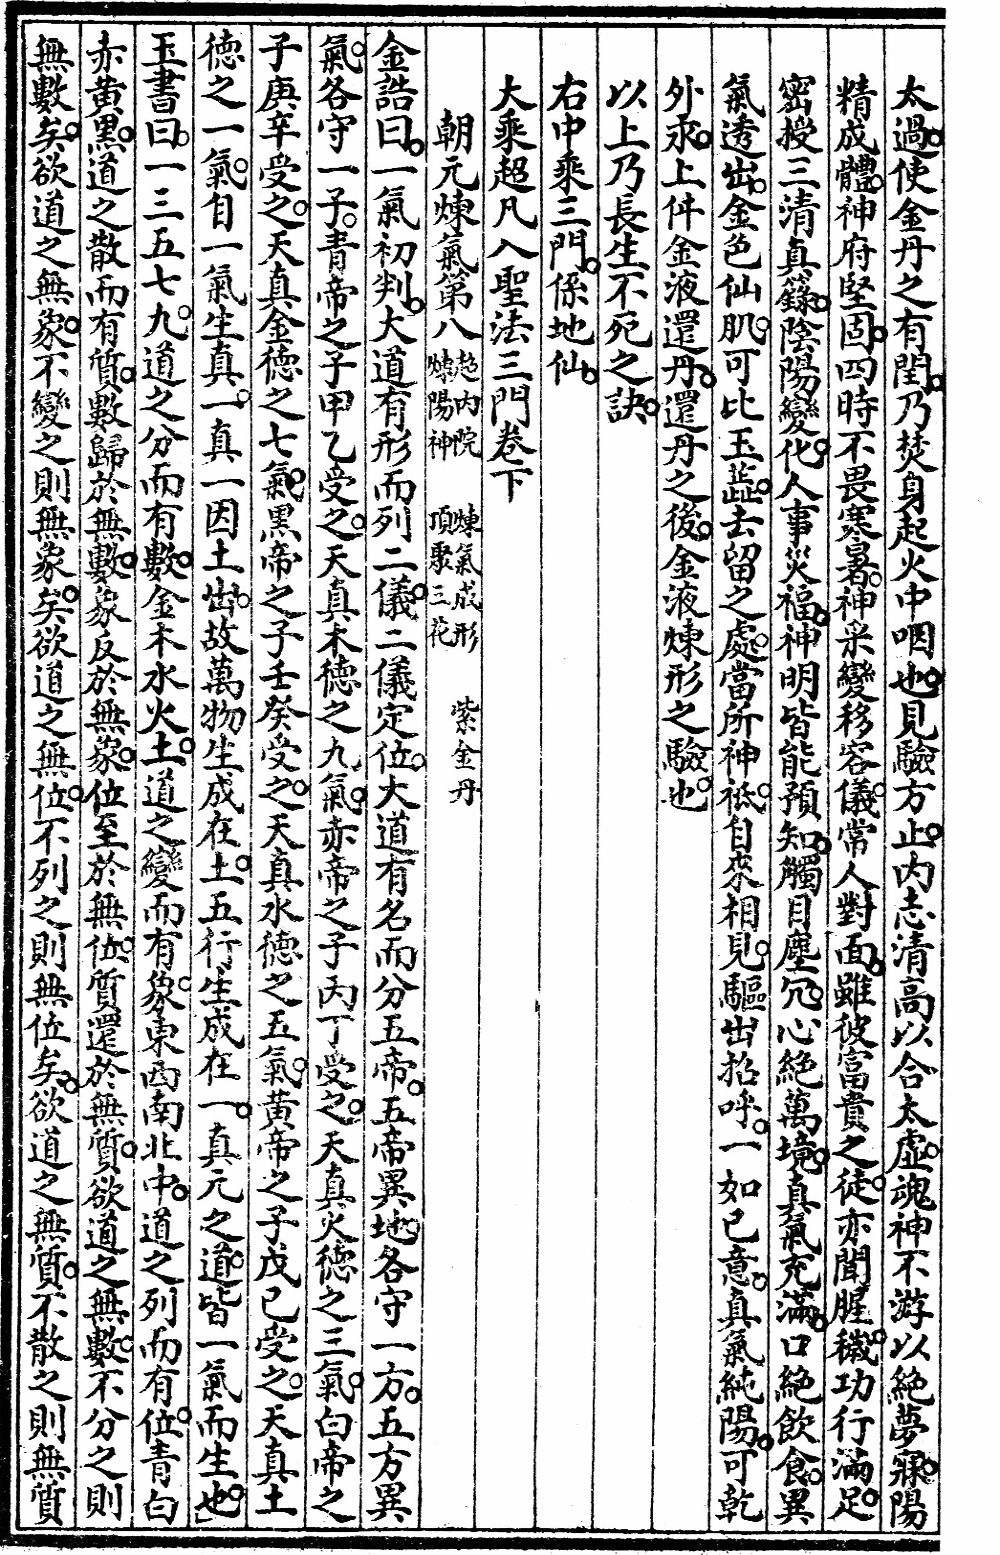 太過使金丹之有閏乃焚身起火中咽也見驗方止內志清高以合太虛魂神不游以絕夢寐陽
精成體神府堅固四時不畏寒暑神采變移容儀常人對面雖彼富貴之徒亦聞腥穢功行滿足
密授三清真籙陰陽變化人事災福神明皆能預知觸目塵冗心絕萬境真氣充滿口絕飲食異
氣透出金色仙肌可比玉蘂去留之處當所神祗自來相見驅出招呼一如己意真氣純陽可乾
外汞上件金液還丹還丹之後金液煉形之驗也
以上乃長生不死之訣
右中乘三門係地仙
大乘超凡入聖法三門卷下
朝元煉氣第八 超內院煉陽神 煉氣成形頂聚三花 紫金丹
金誥曰一氣初判大道有形而列二儀二儀定位大道有名而分五帝五帝異地各守一方五方異
氣各守一子青帝之子甲乙受之天真木德之九氣赤帝之子丙丁受之天真火德之三氣白帝之
子庚辛受之天真金德之七氣黑帝之子壬癸受之天真水德之五氣黃帝之子戊己受之天真土
德之一氣自一氣生真一真一因土出故萬物生成在土五行生成在一真元之道皆一氣而生也
玉書曰一三五七九道之分而有數金木水火土道之變而有象東西南北中道之列而有位青白
赤黃黑道之散而有質數歸於無數象反於無象位至於無位質還於無質欲道之無數不分之則
無數矣欲道之無象不變之則無象矣欲道之無位不列之則無位矣欲道之無質不散之則無質